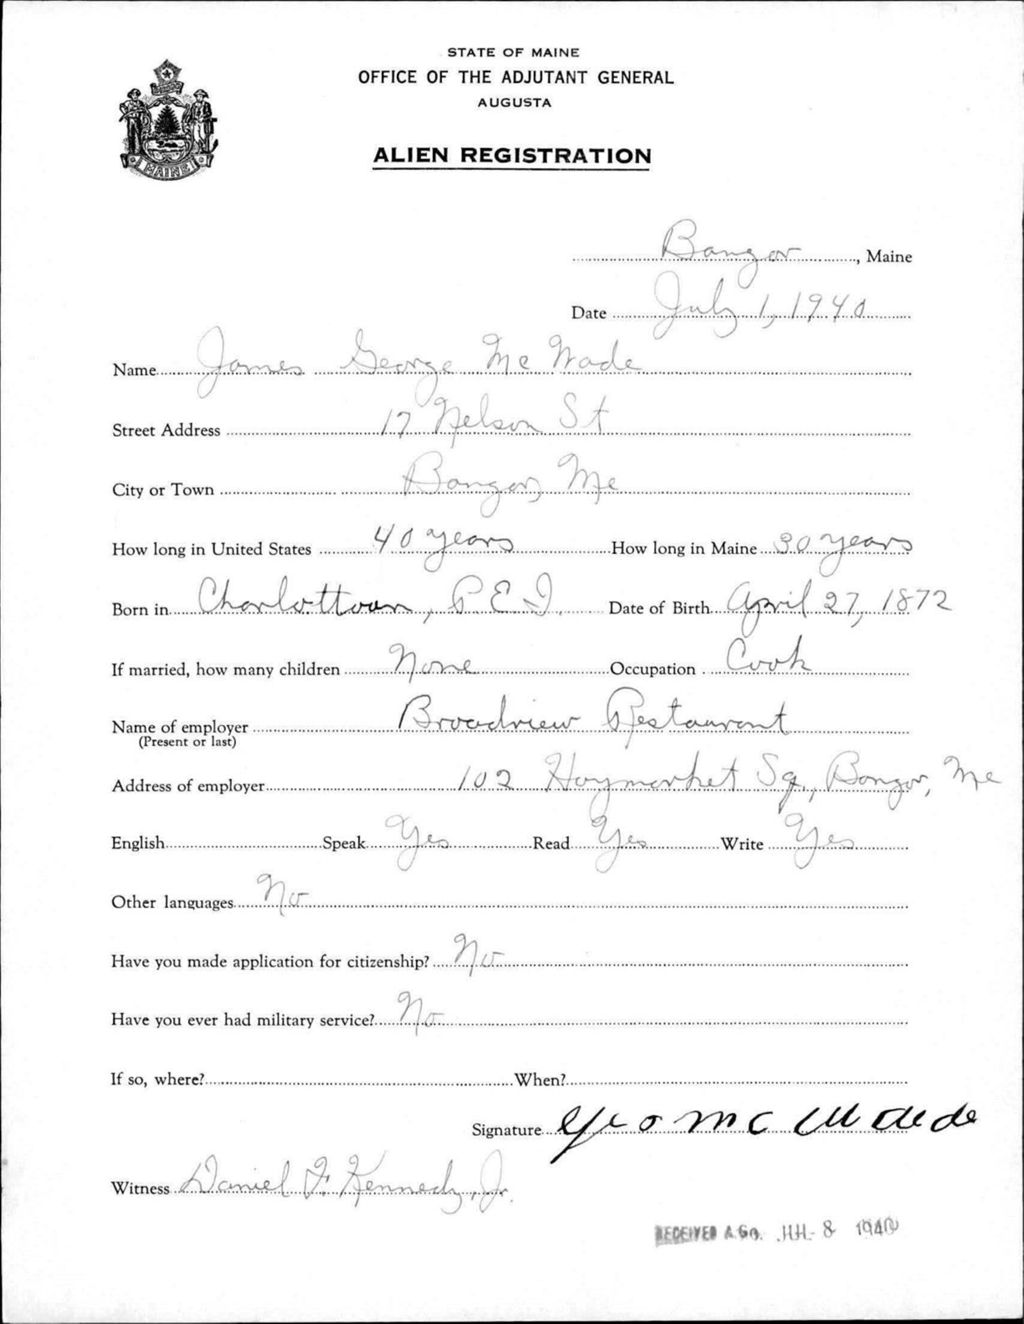 STATE OF MAINE
OFFICE OF THE ADJUTANT GENERAL
AUGUSTA
ALIEN REGISTRATION
MAINE
Bangor, Maine
Date July 1, 1940
Name James George McWade
Street Address 17 Nelson St
City or Town Bangor, Me
How long in United States 40 years How long in Maine 30 years
Born in Charlottown, P.E.I. Date of Birth April 27, 1872
If married, how many children None Occupation Cook
Name of employer Broadview Restaurant
(Present or last)
Address of employer 102 Haymarket Sq., Bangor, Me
English Speak Yes Read Yes Write Yes
Other languages No
Have you made application for citizenship? No
Have you ever had military service? No
If so, where? When?
Signature Geo McWade
Witness Daniel F. Kennedy, Jr.
RECEIVED A.G.O. JUL - 8 1940